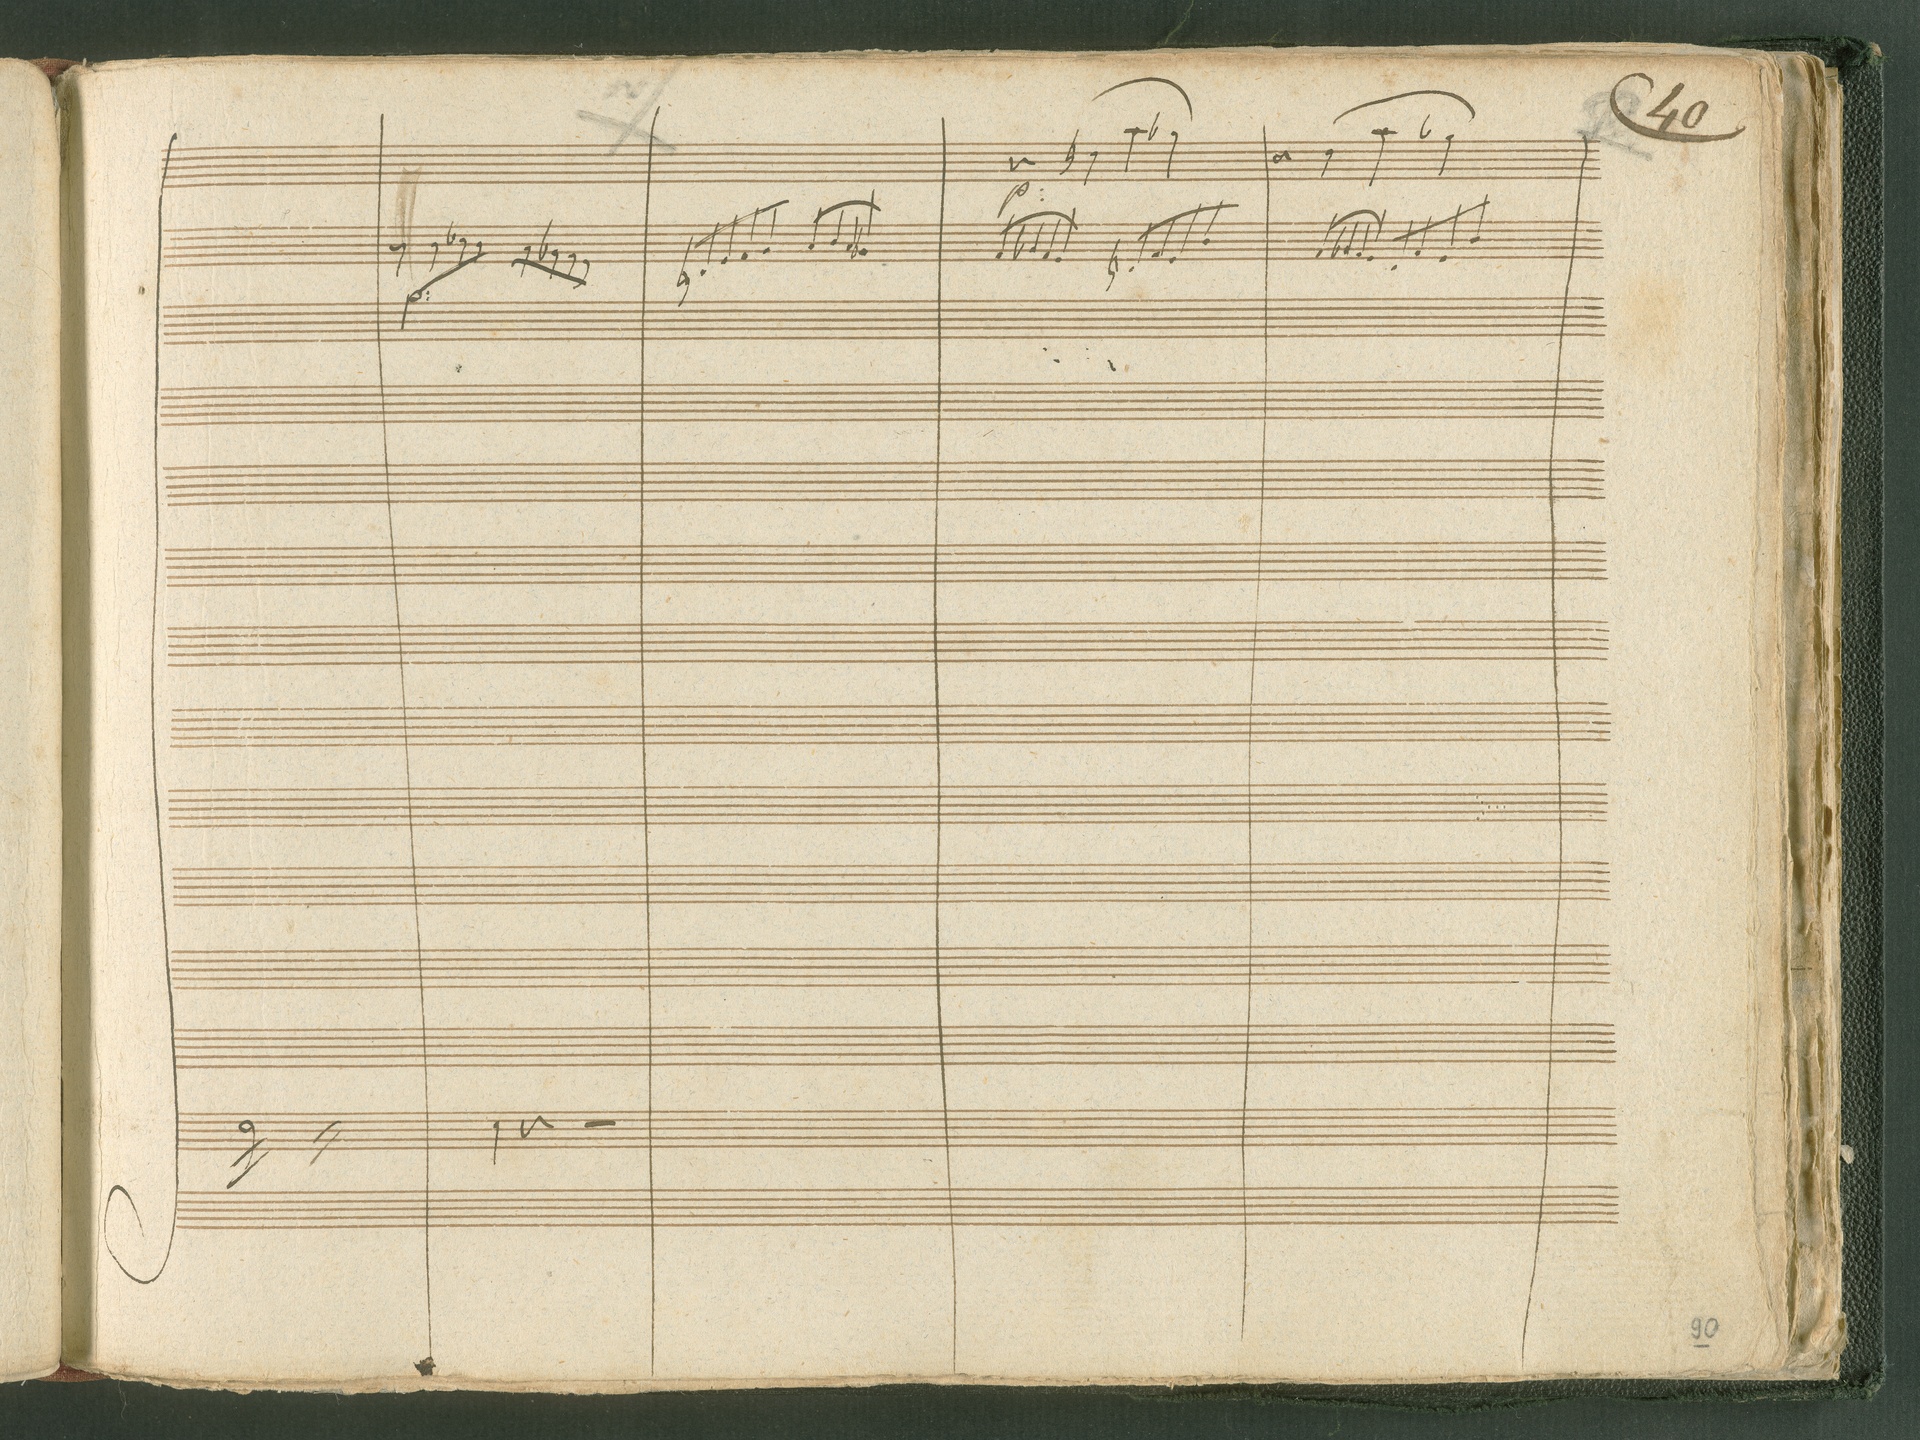 40
p:
p:
90